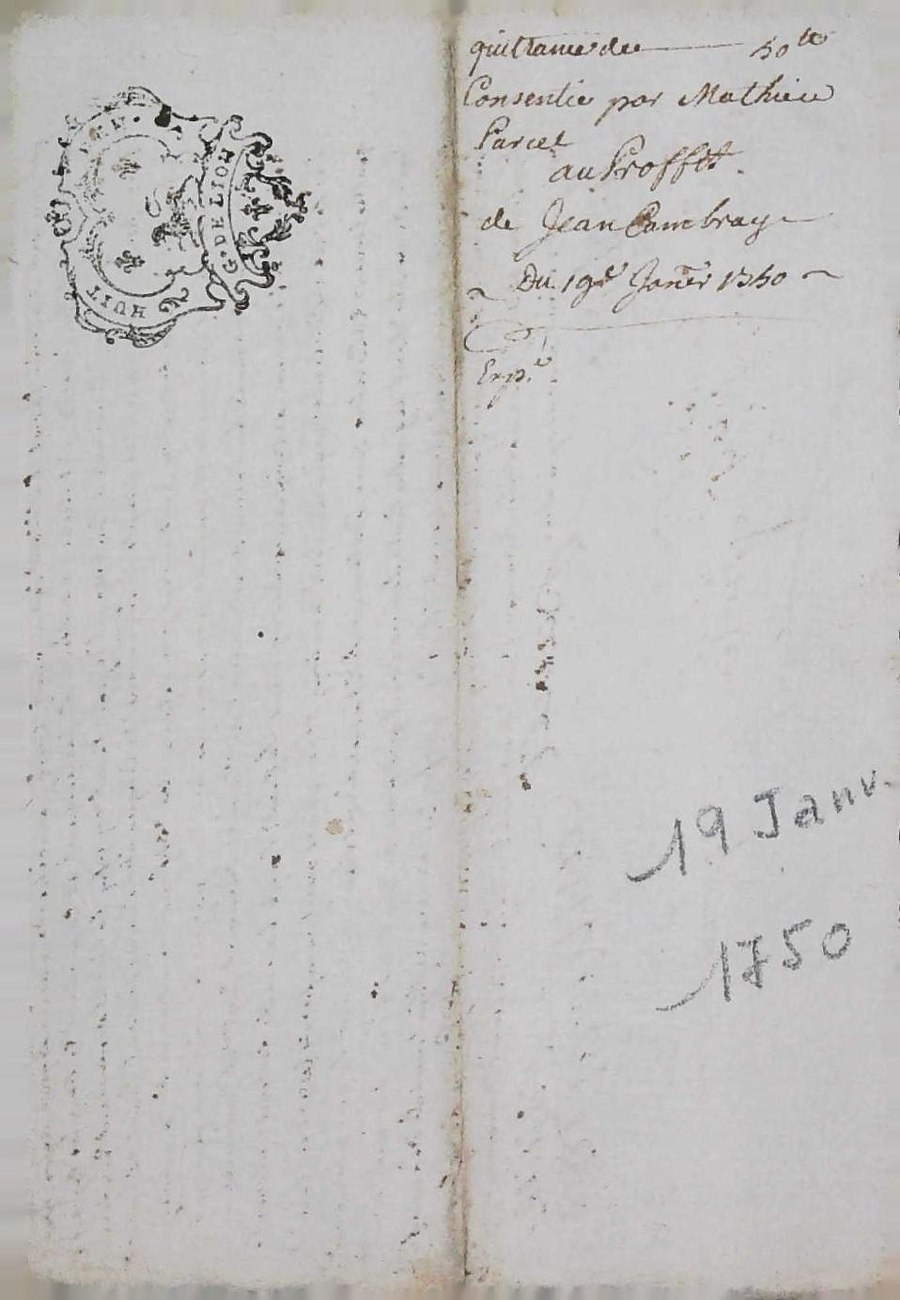 HUIT DEN.
G. DE LION
quittance de 50 ₶
Consentie par Mathieu
Parcel
au Proffit
de Jean Cambray
Du 19e Janer 1750
Exp.e
19 Janv.
1750